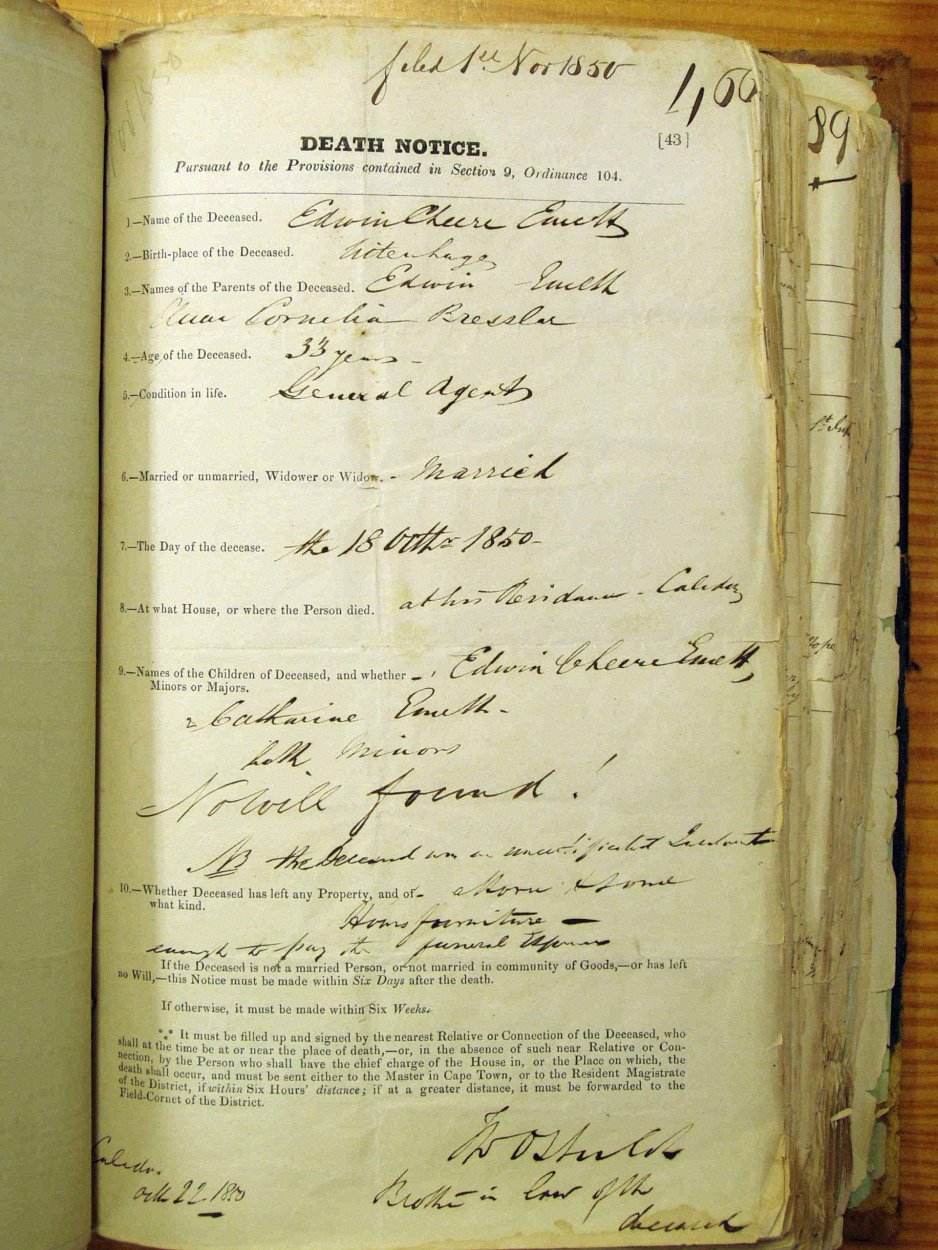 filed 1st Nov 1850
1,66
[43]
DEATH NOTICE.
Pursuant to the Provisions contained in Section 9, Ordinance 104.
1.—Name of the Deceased. Edwin Cheere Emett
2.—Birth-place of the Deceased. Uitenhage
3.—Names of the Parents of the Deceased. Edwin Emett
Anna Cornelia Bresslar
4.—Age of the Deceased. 33 years -
5.—Condition in life. General Agent
6.—Married or unmarried, Widower or Widow. - Married
7.—The Day of the decease. the 18 Octbr 1850-
8.—At what House, or where the Person died. at his Residance - Caledon
9.—Names of the Children of Deceased, and whether - 1 Edwin Cheere Emett
Minors or Majors.
2 Catharine Emett -
both Minors
No will found!
NB the Deceased was an
10.—Whether Deceased has left any Property, and of - a Horse & some
what kind.
Hous furniture -
enough to pay the funeral Expences
If the Deceased is not a married Person, or not married in community of Goods,—or has left
no Will,—this Notice must be made within Six Days after the death.
If otherwise, it must be made within Six Weeks.
*** It must be filled up and signed by the nearest Relative or Connection of the Deceased, who
shall at the time be at or near the place of death,—or, in the absence of such near Relative or Con-
nection, by the Person who shall have the chief charge of the House in, or the Place on which, the
death shall occur, and must be sent either to the Master in Cape Town, or to the Resident Magistrate
of the District, if within Six Hours' distance; if at a greater distance, it must be forwarded to the
Field-Cornet of the District.
Caledon
Octb 22 1850
Brother in law of the
deceased
89